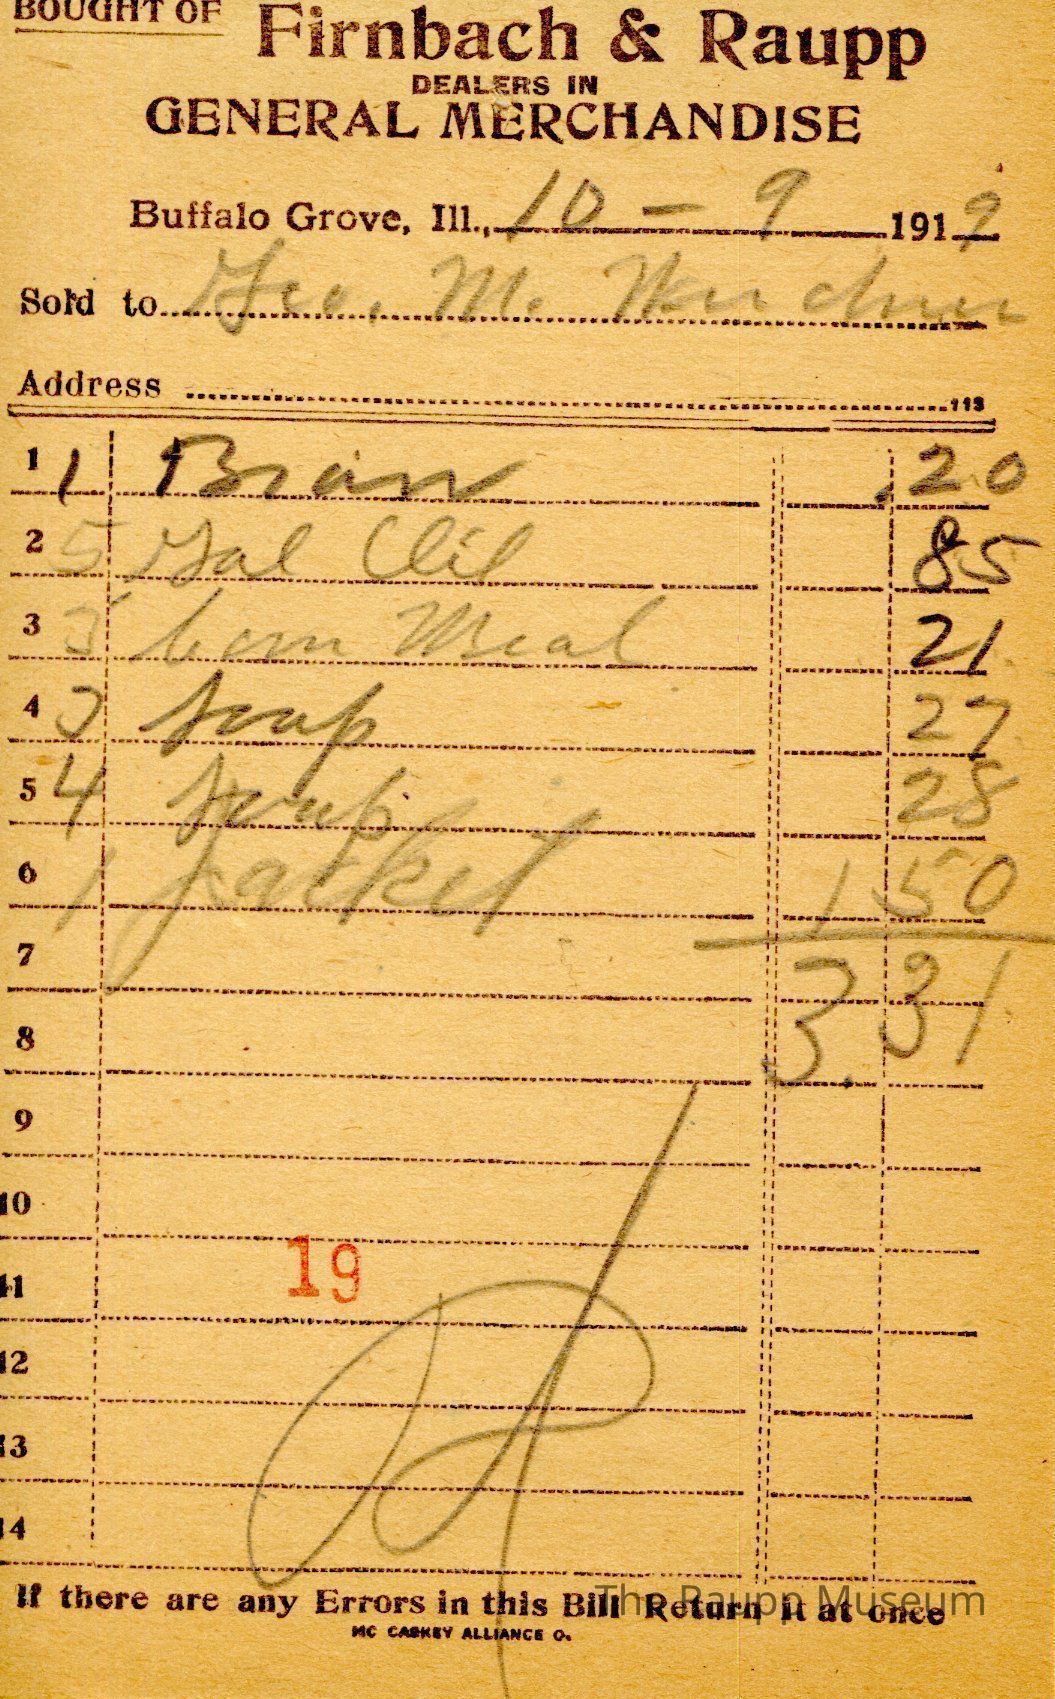 BOUGHT OF
Firnbach & Raupp
DEALERS IN
GENERAL MERCHANDISE
Buffalo Grove, Ill., 10 - 9 1919
Sold to Geo. M.
Address 113
1 1 Bran .20
2 5 Gal Oil 85
3 3 Corn Meal 21
4 3 Soap 27
5 4 Soap 28
6 1 Jacket 1 50
7 3.31
8
9
10
19
11
12
13
14
If there are any Errors in this Bill Return it at once
The Raupp Museum
MC CASKEY ALLIANCE O.